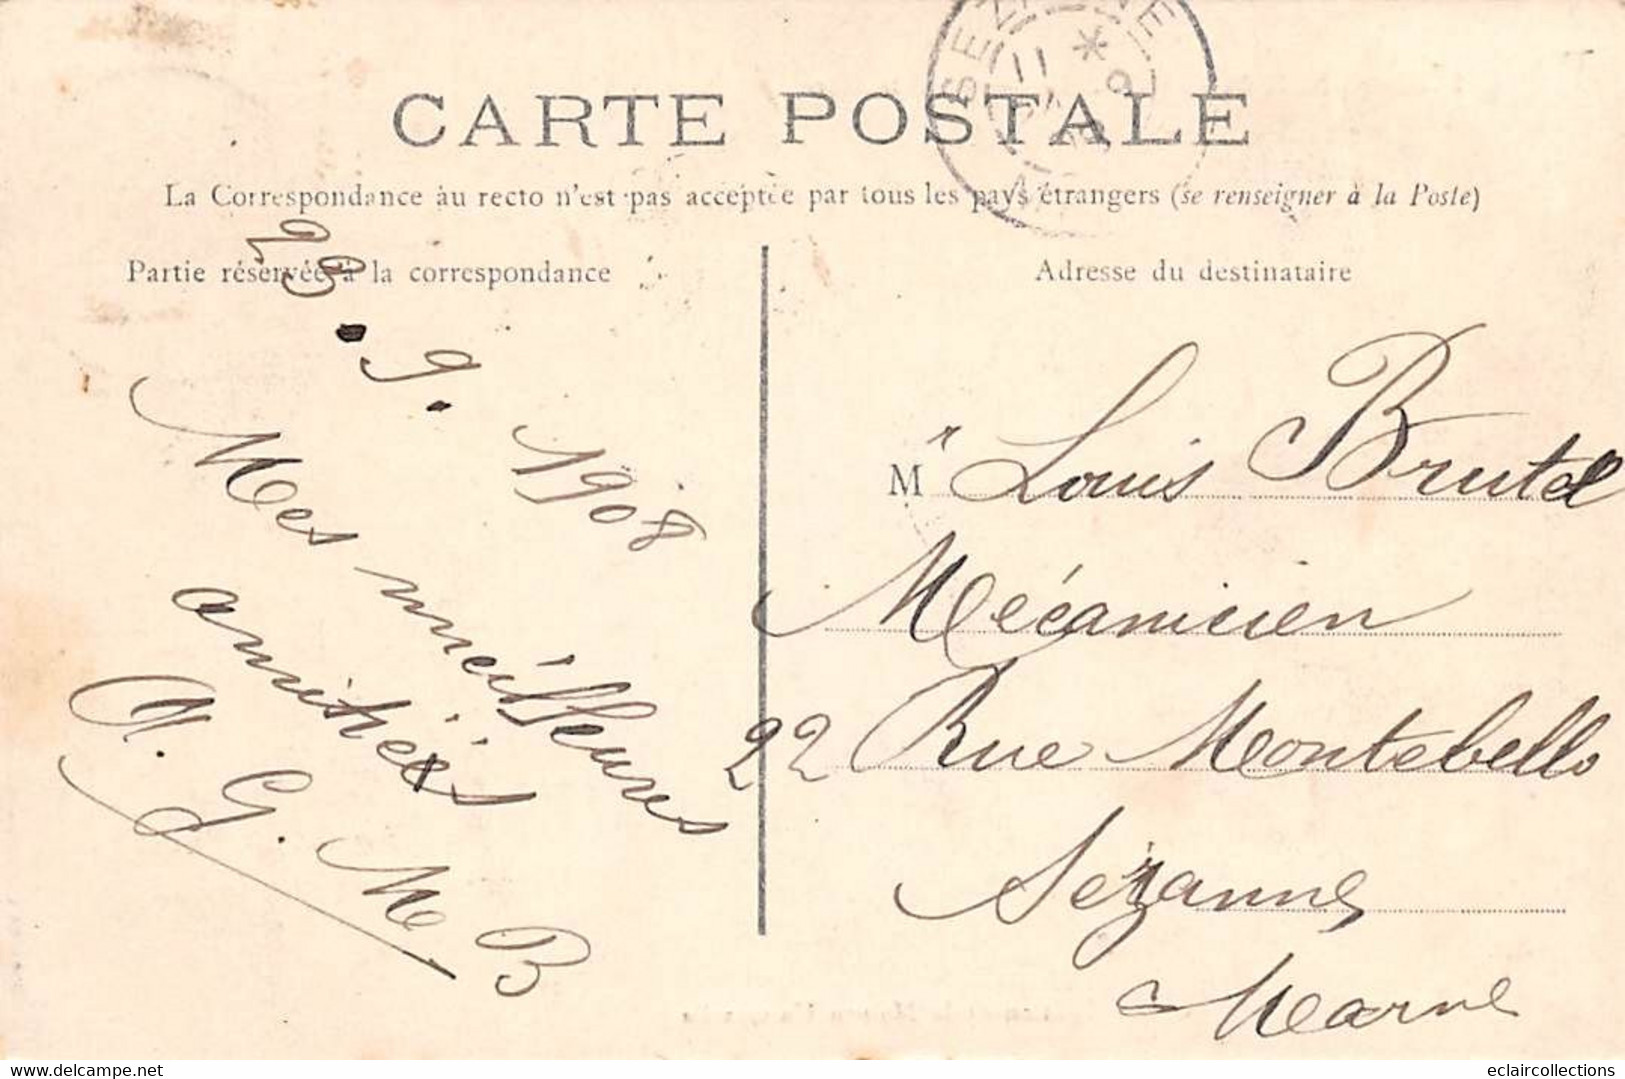 CARTE POSTALE
La Correspondance au recto n'est pas acceptée par tous les pays étrangers (se renseigner à la Poste)
Partie réservée à la correspondance
29.9.1908
Mes meilleures
amitiés
G. M B
Adresse du destinataire
Mr Louis Brutel
Mécanicien
22 Rue Montebello
Sézanne
Marne
SEZANNE
delcampe.net
eclaircollections